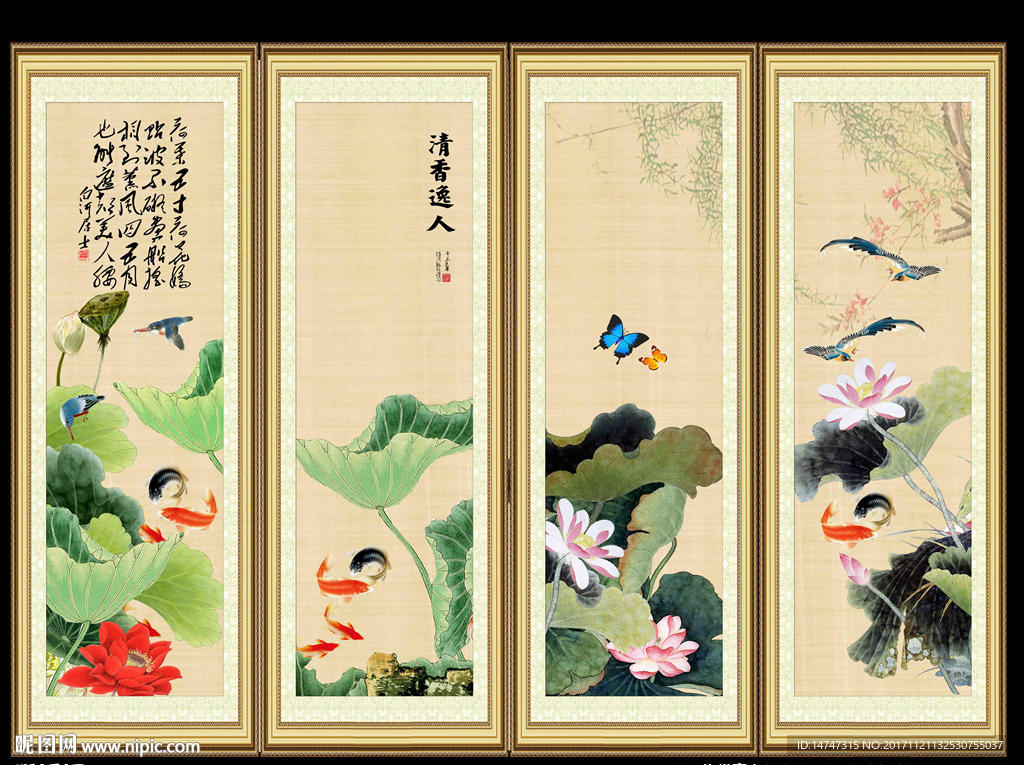 荷葉五寸荷花嬌
貼波不礙畫船搖
相到薰風四五月
也能遮却美人腰
白河居士
清香逸人
昵图网 www.nipic.com
ID:14747315 NO:20171121132530755037